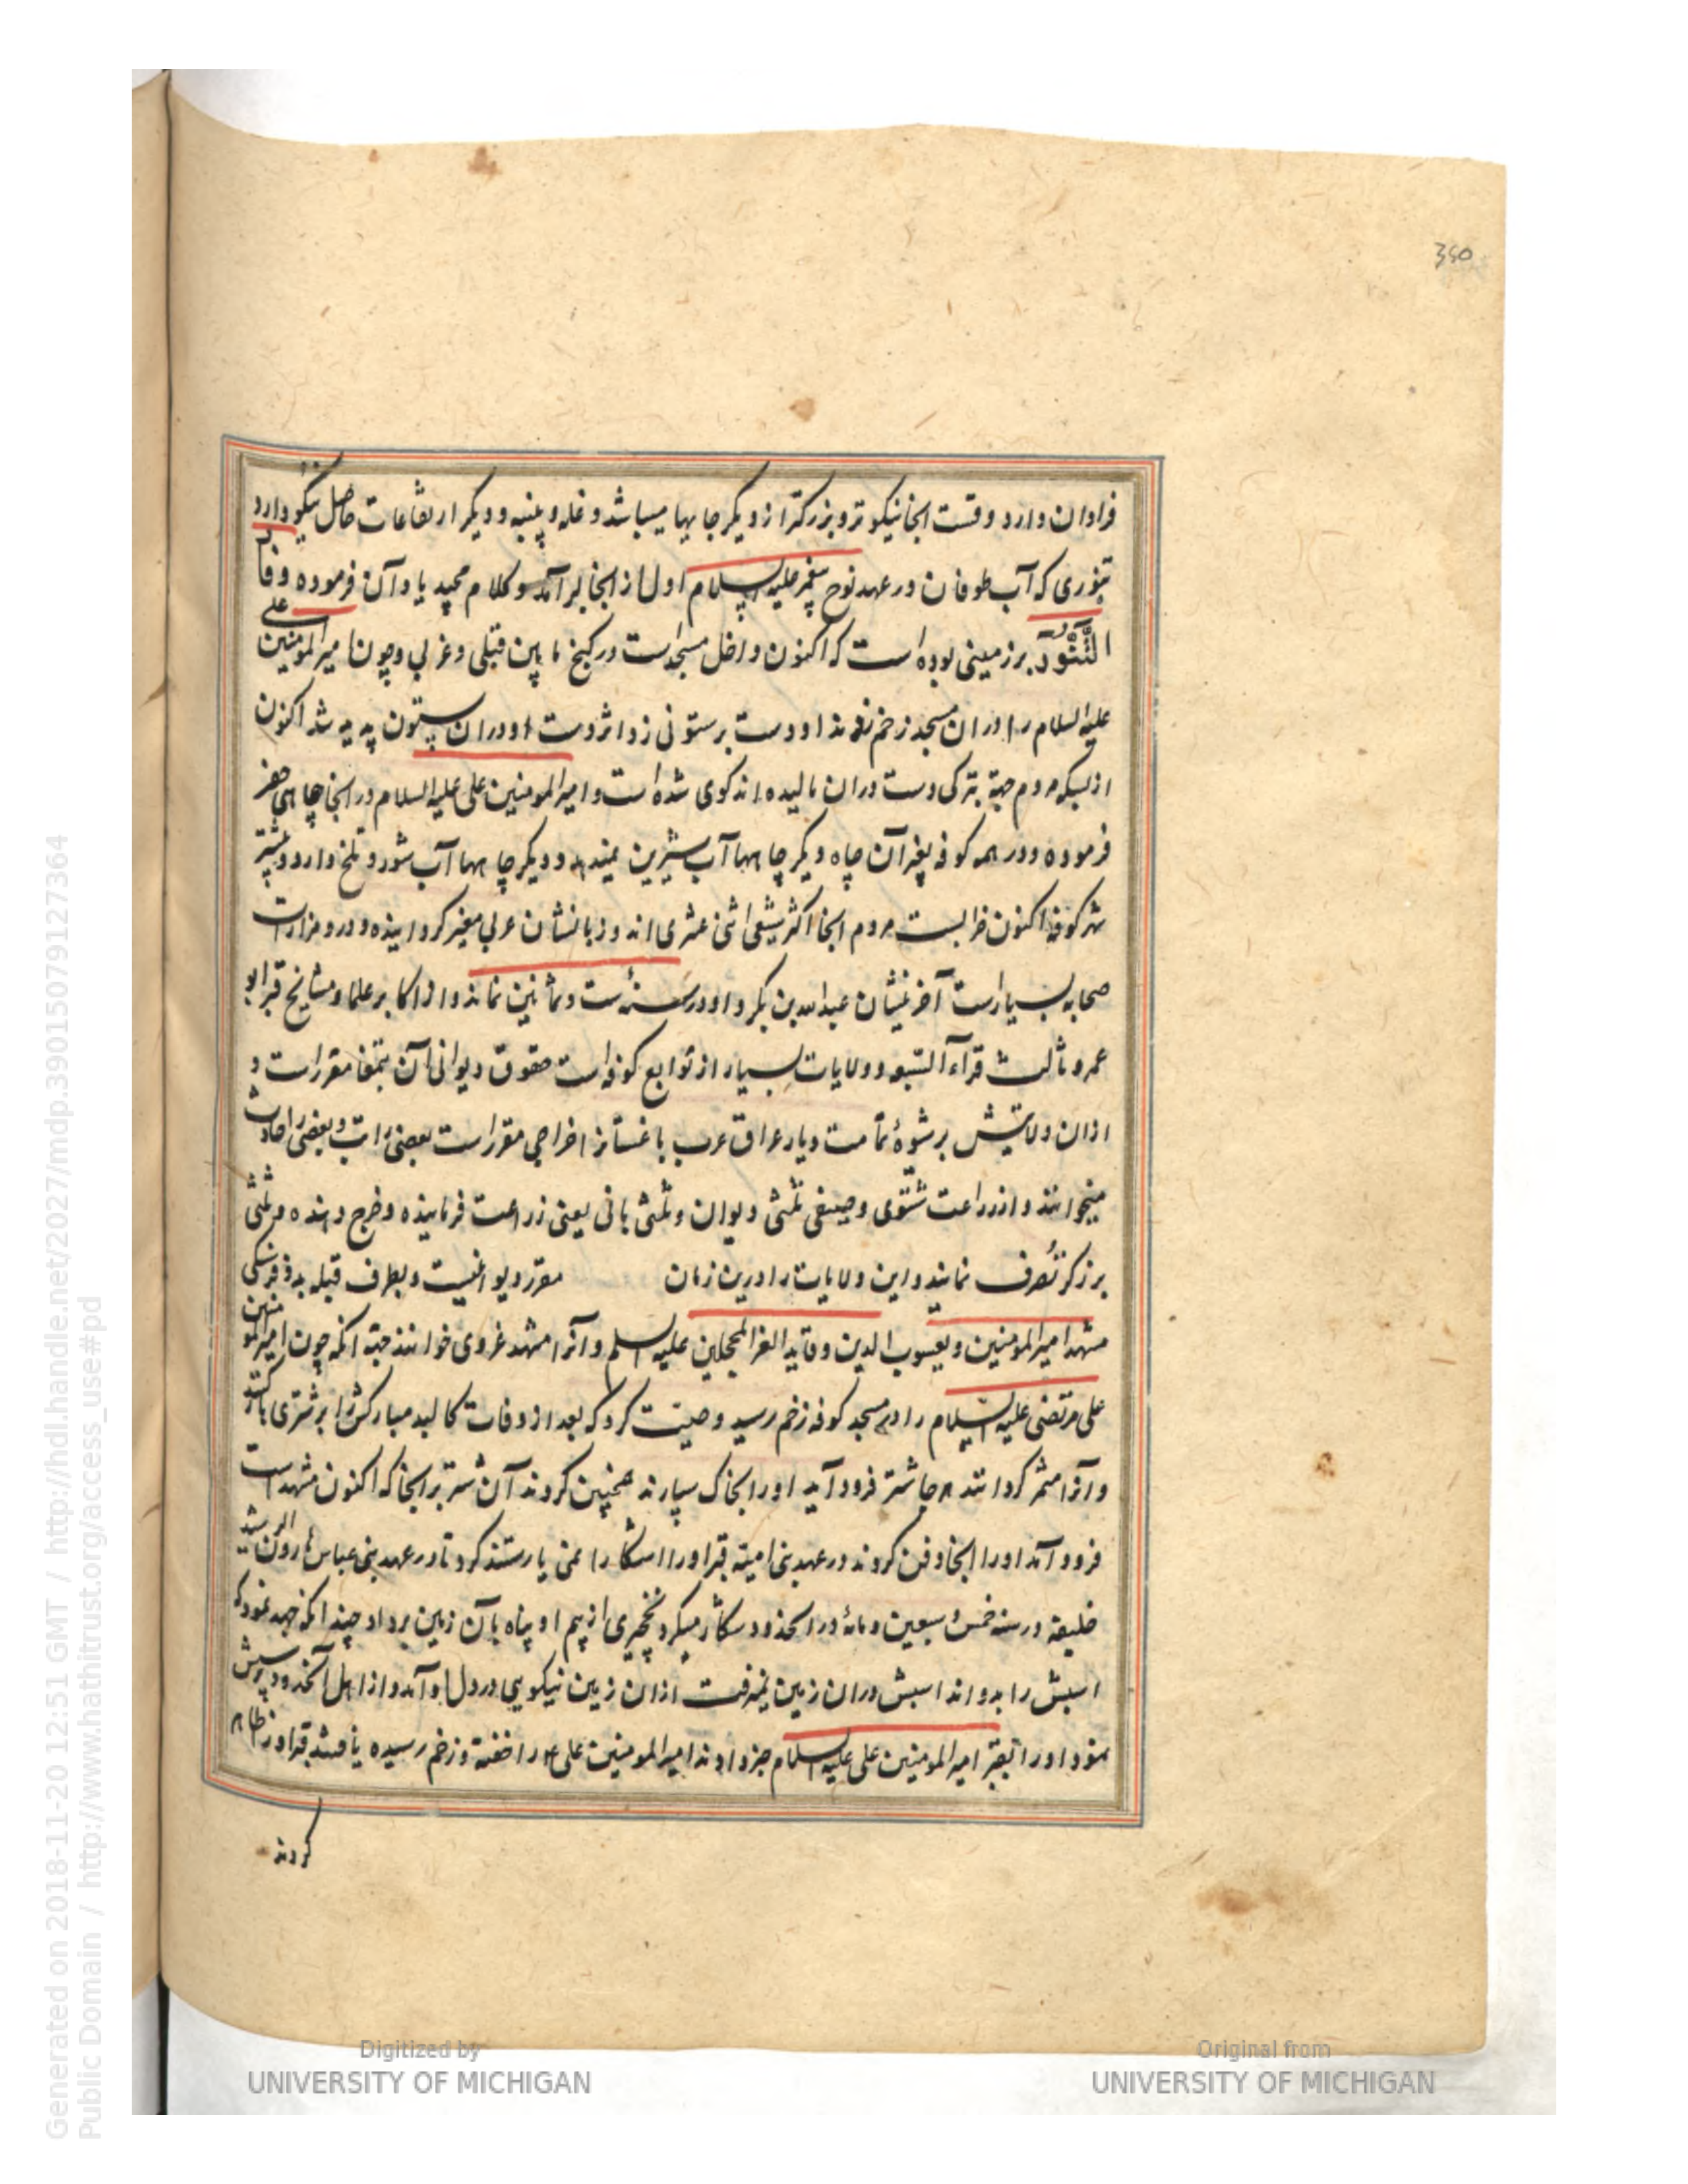 350
فراوان دارد و قست انجا نیکوتر و بزرکتر از دیکر جایها میباشد و غله و پنبه و دیکر ارتفاعات حاصل نیکو دارد
تنوری که آب طوفان در عهد نوح پیغمبر علیه السلام اول از انجا برآمد و کلام مجید یاد آن فرموده و فار
التَّنُّور بر زمینی بوده است که اکنون داخل مسجد است در کنج مابین قبلی و غربی و چون امیر المومنین علی
علیه السلام را در ان مسجد زخم زدند او دست بر ستونی زد اثر دست او در ان ستون پدید شد اکنون
از بسکه مردم جهة تبرکی دست در ان مالیده اند کوی شده است و امیر المومنین علی علیه السلام در انجا چاهی حفر
فرموده و در همه کوفه بغیر آن چاه دیکر چاهها آب شیرین نمیدهد و دیکر چاهها آب شور و تلخ دارد و بیشتر
شهر کوفه اکنون خرابست مردم انجا اکثر شیعی اثنی عشری اند و زبانشان عربی مغیر کردانیده و در و مزارات
صحابه بسیار است آخرینشان عبدالله بن بکر و او در سنه ست و ثمانین نماند و از اکابر علما و مشایخ قبر ابو
عمرو ثالث قراء السبعه و ولایات بسیار از توابع کوفه است حقوق دیوانی آن بتمغا مقرر است و
از ان ولایتش بر شیوهٔ تمامت دیار عراق عرب باغستانرا خراجی مقرر است بعضی راتب و بعضی راحادث
میخوانند و از زراعت شتوی و صیفی ثلثی دیوان و ثلثی بانی یعنی زراعت فرماینده و خرج دهنده و ثلثی
برزکر تصرف نمایند و این ولایات را درین زمان مقرر دیوانیست و بطرف قبله بدو فرسنکی
مشهد امیر المومنین و یعسوب الدین و قاید الغر المحجلین علیه السلم و آنرا مشهد غروی خوانند جهة انکه چون امیر المومنین
علی مرتضی علیه السلام را در مسجد کوفه زخم رسید وصیت کرد که بعد از وفات کالبد مبارکش را بر شتری بار کنند
و آنرا مشمر کردانند هر جا شتر فرود آید او را بخاک سپارند همچنین کردند آن شتر بر انجا که اکنون مشهد است
فرود آمد او را انجا دفن کردند در عهد بنی امیة قبر او را اشکارا نمی یارستند کرد تا در عهد بنی عباس هارون الرشید
خلیفه در سنه خمس و سبعین و مائه در انحدود شکار میکرد نخچیری از بیم او پناه بآن زمین برد او چندانکه جهد نمود که
اسبش را بدواند اسبش در ان زمین نمیرفت از ان زمین نیکویی در دل او آمد و از اهل آنحدود پرسش
نمود او را بقبر امیر المومنین علی علیه السلام خبر دادند امیر المومنین علی ع را خفته و زخم رسیده یافتند قبر او ظاهر
کردند
Generated on 2018-11-20 12:51 GMT / http://hdl.handle.net/2027/mdp.39015079127364
Public Domain / http://www.hathitrust.org/access_use#pd
Digitized by
UNIVERSITY OF MICHIGAN
Original from
UNIVERSITY OF MICHIGAN